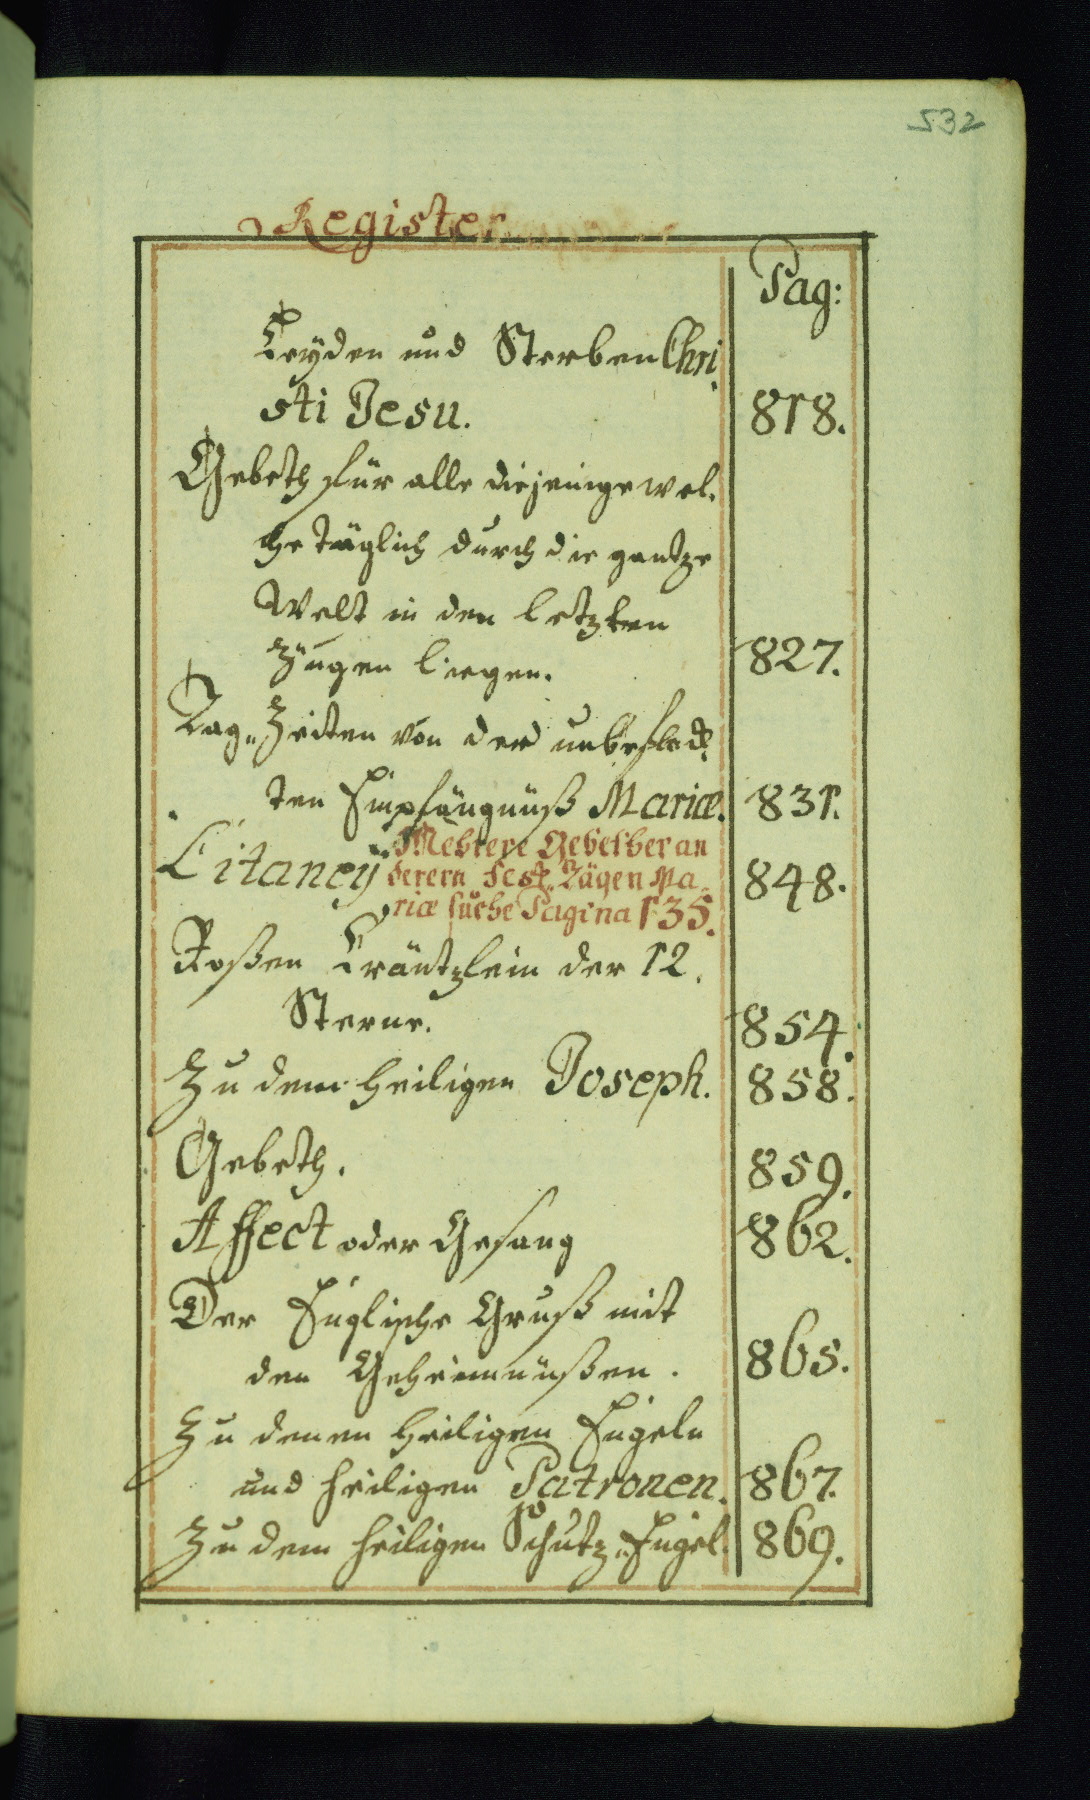 532
Register
Pag:
Leÿden und Sterben Chri,
sti Jesu. 818.
Gebeth für alle diejenige wel,
che täglich durch die gantze
Welt in den letzten
Zügen liegen. 827.
Tag„Zeiten von der unbefleck,
ten Empfängnüß Mariæ. 831.
Litaneÿ 848.
Mehrere Gebether an
deren Fest„Tägen Ma„
riæ suche Pagina 135.
Roßen Kräntzlein der 12.
Sterne. 854.
Zu dem heiligen Joseph. 858.
Gebeth. 859.
Affect oder Gesang 862.
Der Englische Gruß mit
den Geheimnüßen. 865.
Zu denen heiligen Engeln
und heiligen Patronen. 867.
Zu dem heiligen Schutz„Engel. 869.